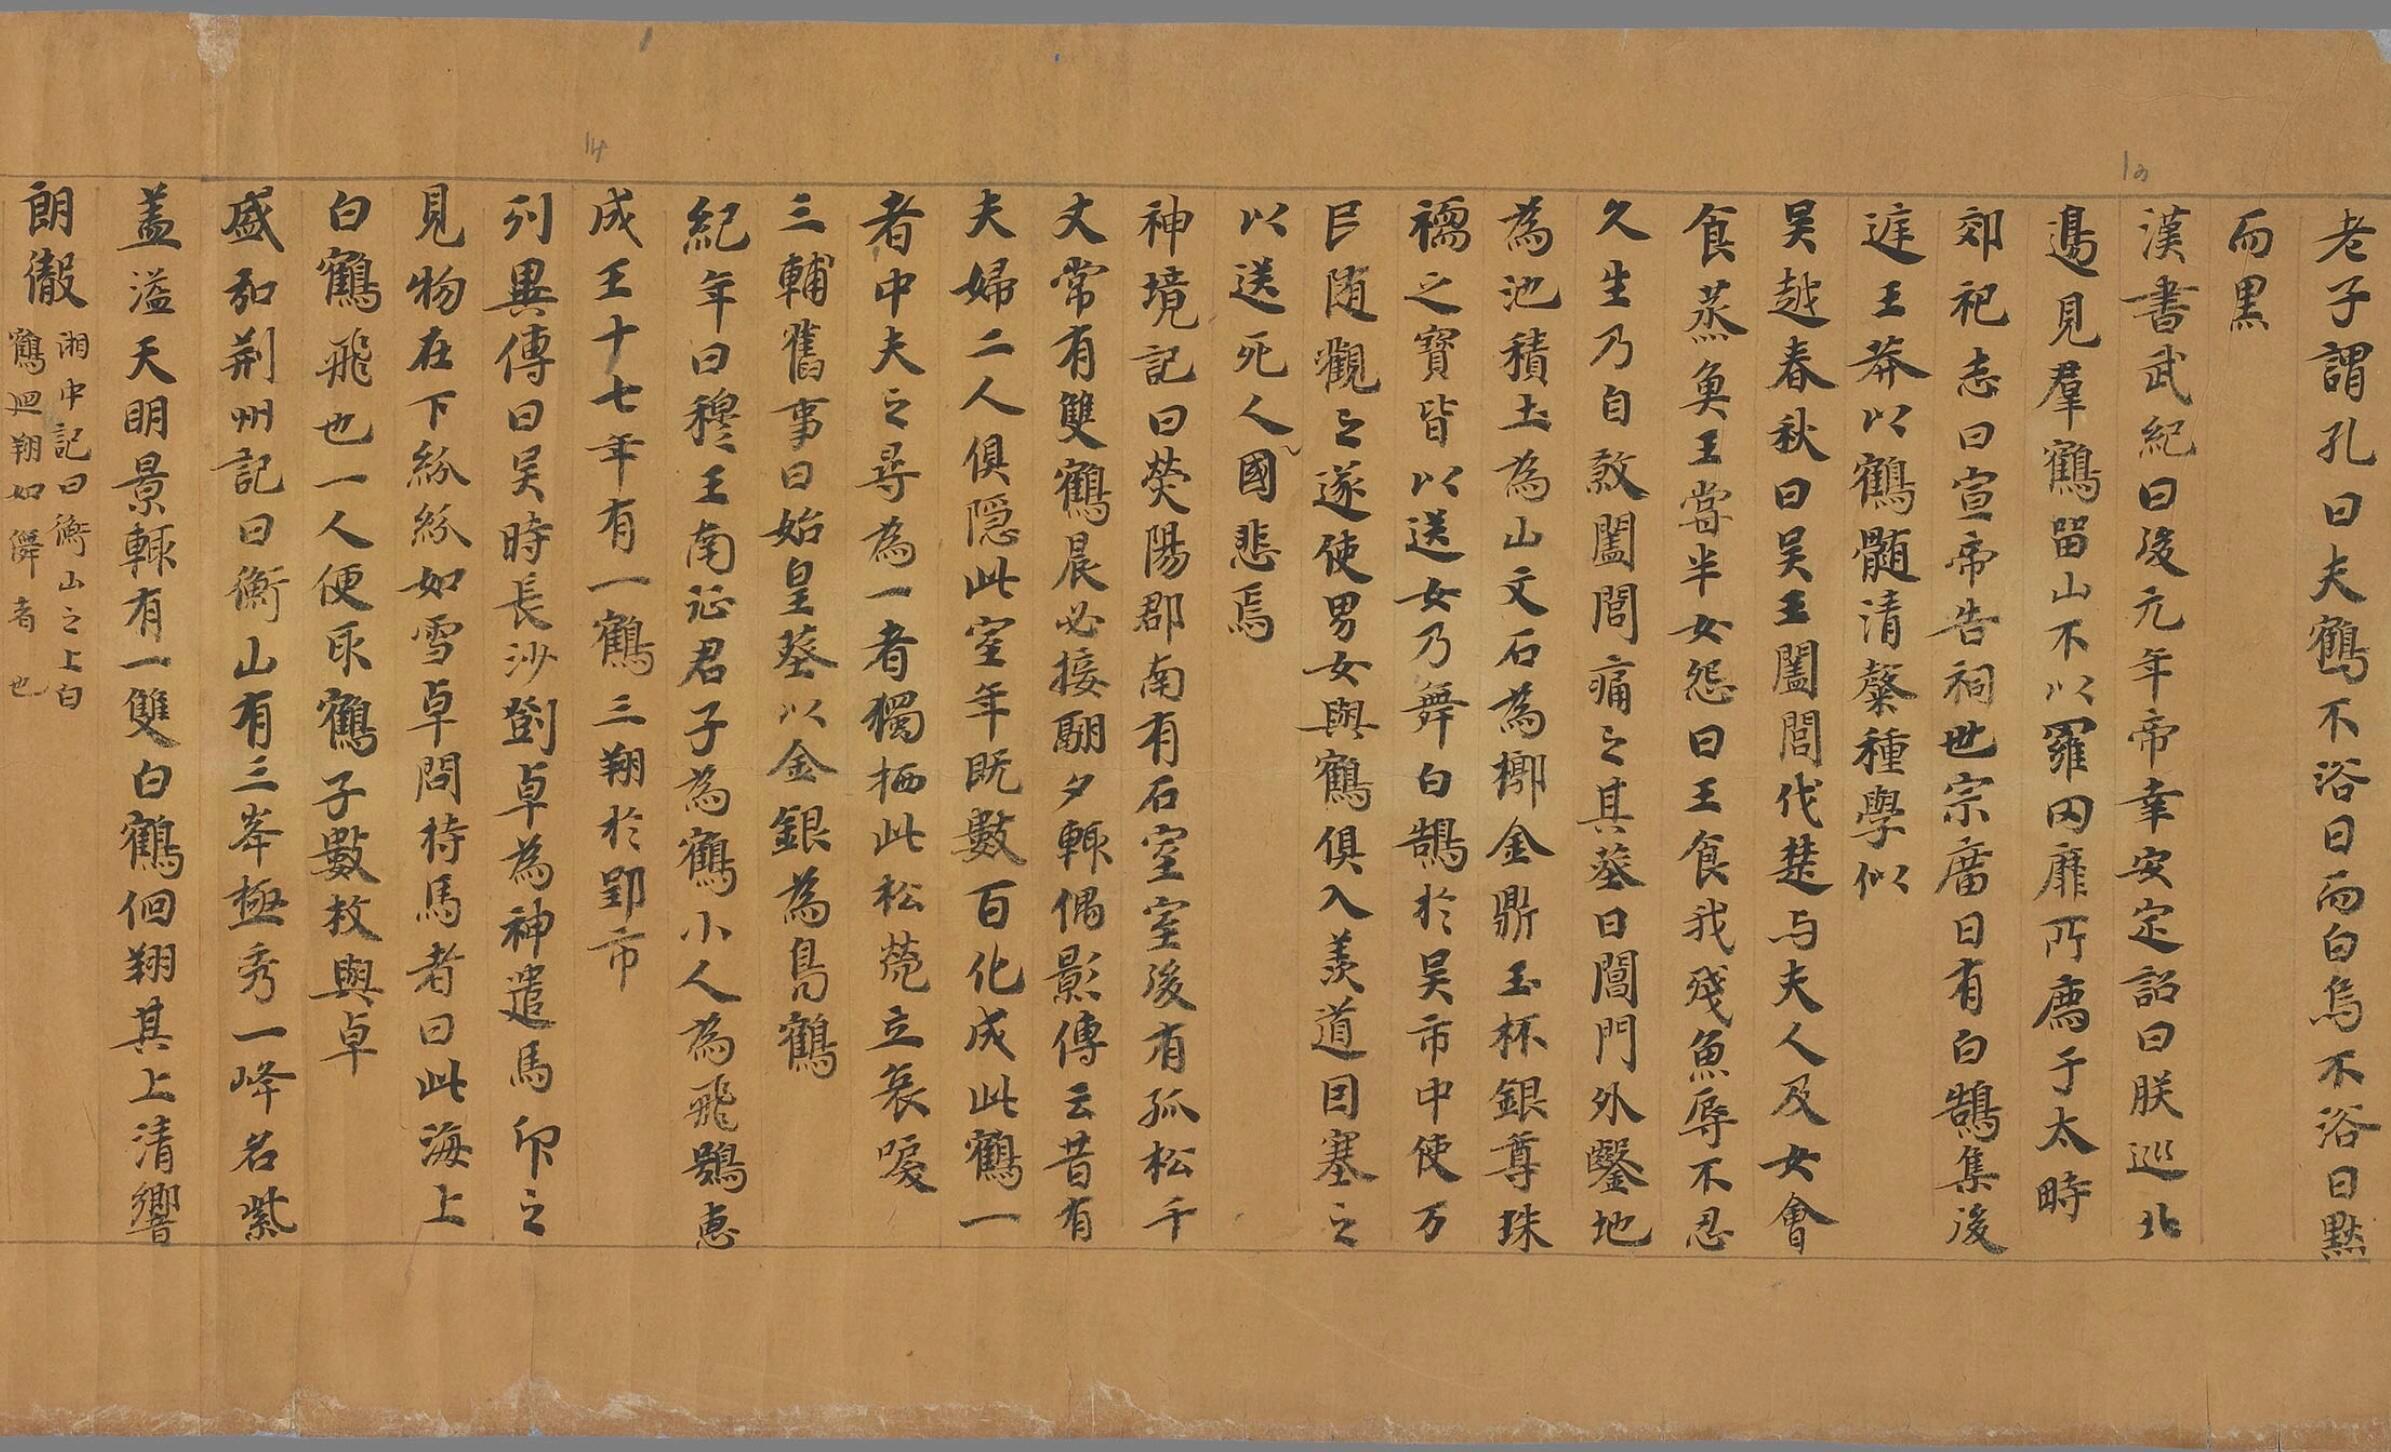 老子謂孔曰夫鶴不浴日而白烏不浴日黙
而黒
漢書武紀曰後元年帝幸安定詔曰朕巡北
邊見羣鶴留山不以羅罔靡所膺于太畤
郊祀志曰宣帝告祠世宗廟日有白鵠集後
庭王莽以鶴髄清糵種學似
吴越春秋曰吴王闔閭伐楚与夫人及女會
食蒸魚王嘗半女怨曰王食我殘魚辱不忍
久生乃自煞闔閭痛之其葬日閶門外鑿地
為池積土為山文石為槨金鼎玉杯銀尊珠
襦之寳皆以送女乃舞白鵠扵吴市中使万
民随觀之遂使男女與鶴俱入羨道因塞之
以送死人國悲焉
神境記曰熒陽郡南有石室室後有孤松千
丈常有雙鶴晨必接翮夕輙偶影傳云昔有
夫婦二人俱隠此室年既數百化成此鶴一
者中夫之尋為一者獨栖此松煢立哀唳
三輔舊事曰始皇葬以金銀為鳬鶴
紀年曰穆王南征君子為鶴小人為飛鴞恵
成王十七年有一鶴三翔扵郢市
列異傳曰吴時長沙劉卓為神遣馬卬之
見物在下紛紛如雪卓問持馬者曰此海上
白鶴飛也一人便取鶴子數枚與卓
盛弘荆州記曰衡山有三峯極秀一峰名紫
盖溢天明景輙有一雙白鶴佪翔其上清響
朗徹 湘中記曰衡山之上白
鶴廻翔如儛者也
14